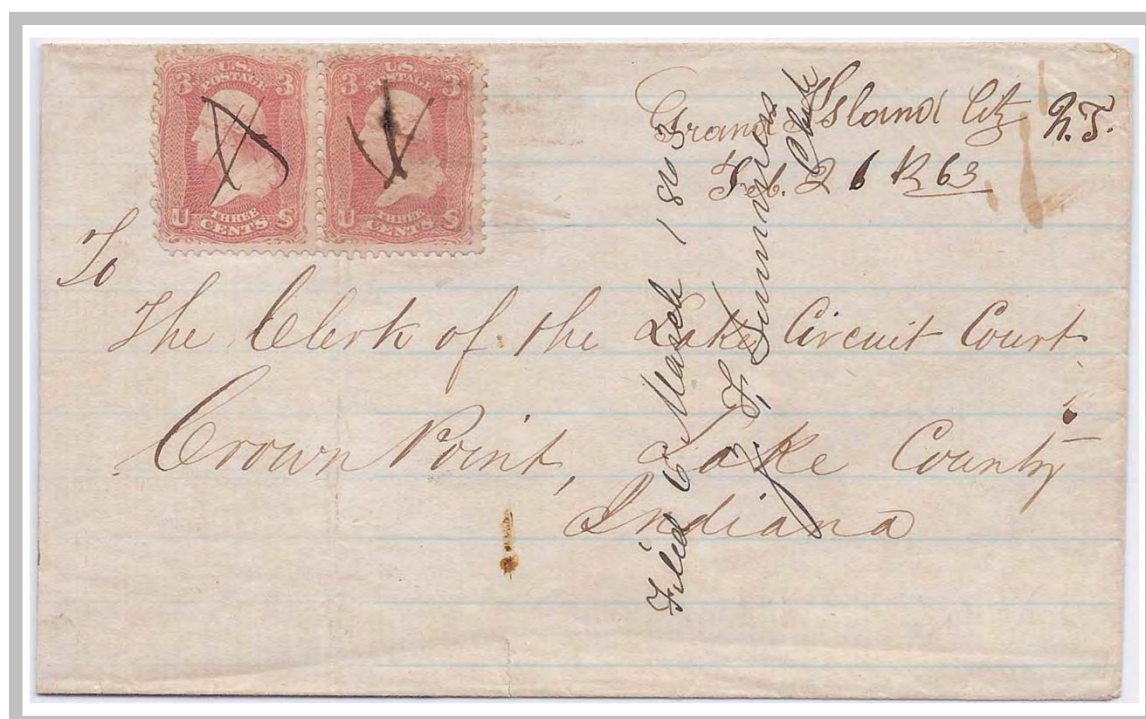 U.S.
3 POSTAGE 3
THREE
U CENTS S
U.S.
3 POSTAGE 3
THREE
U CENTS S
Grand Island City N.T.
Feb. 26 63
To
The Clerk of the Lake Circuit Court
Crown Point, Lake County
Indiana
Filed 6 March 1863
Z. F. Summers
Clerk